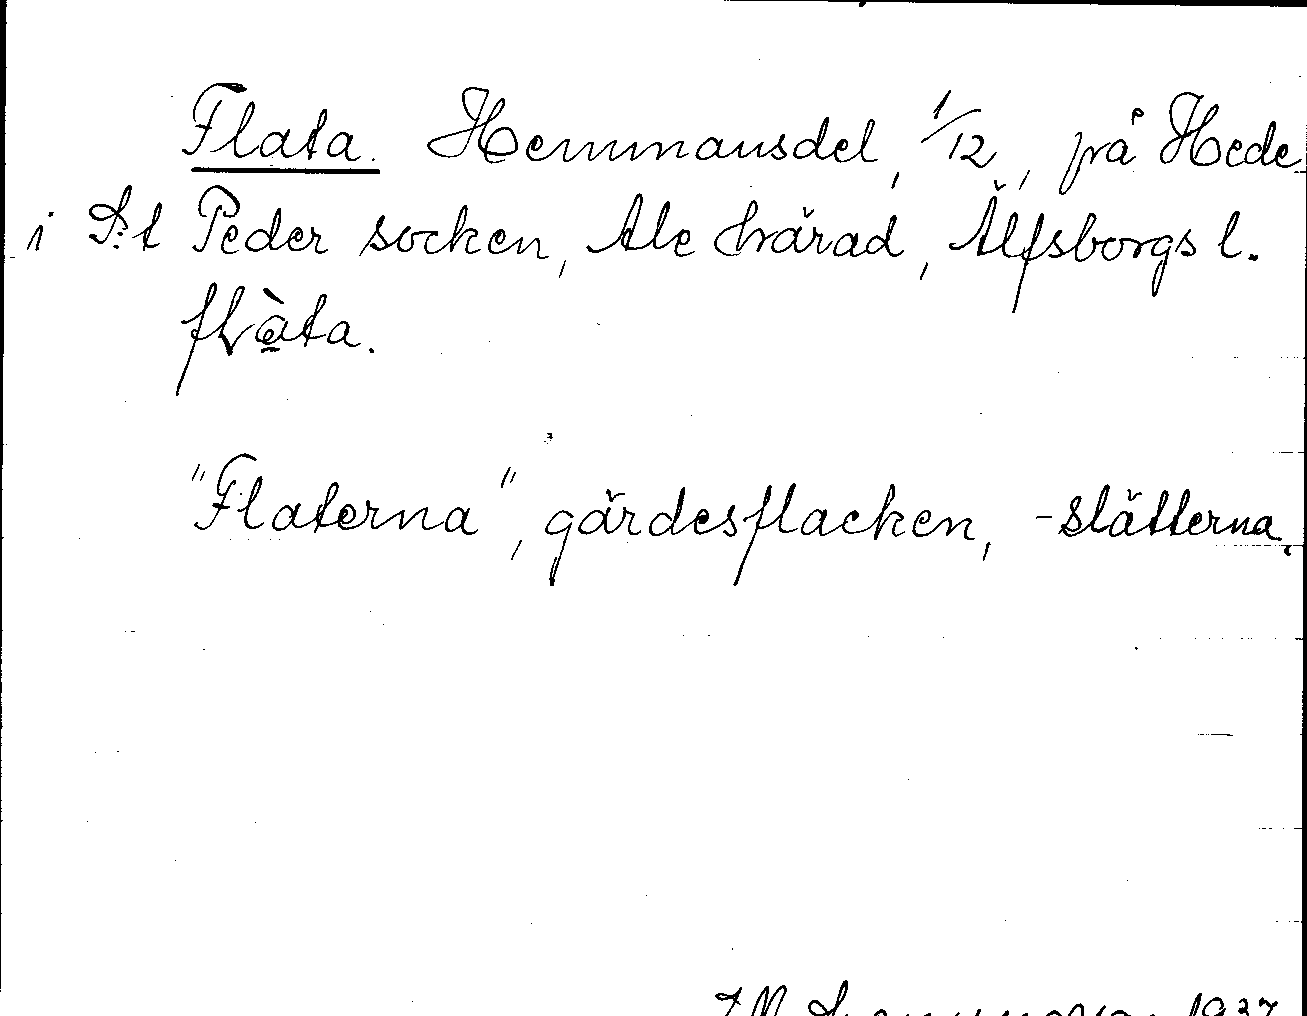 Flata. Hemmansdel, 1/12, på Hede
i S:t Peder socken, Ale härad, Älfsborgs l.
flàta.
"Flaterna", gärdesflacken, -slätterna.
1937